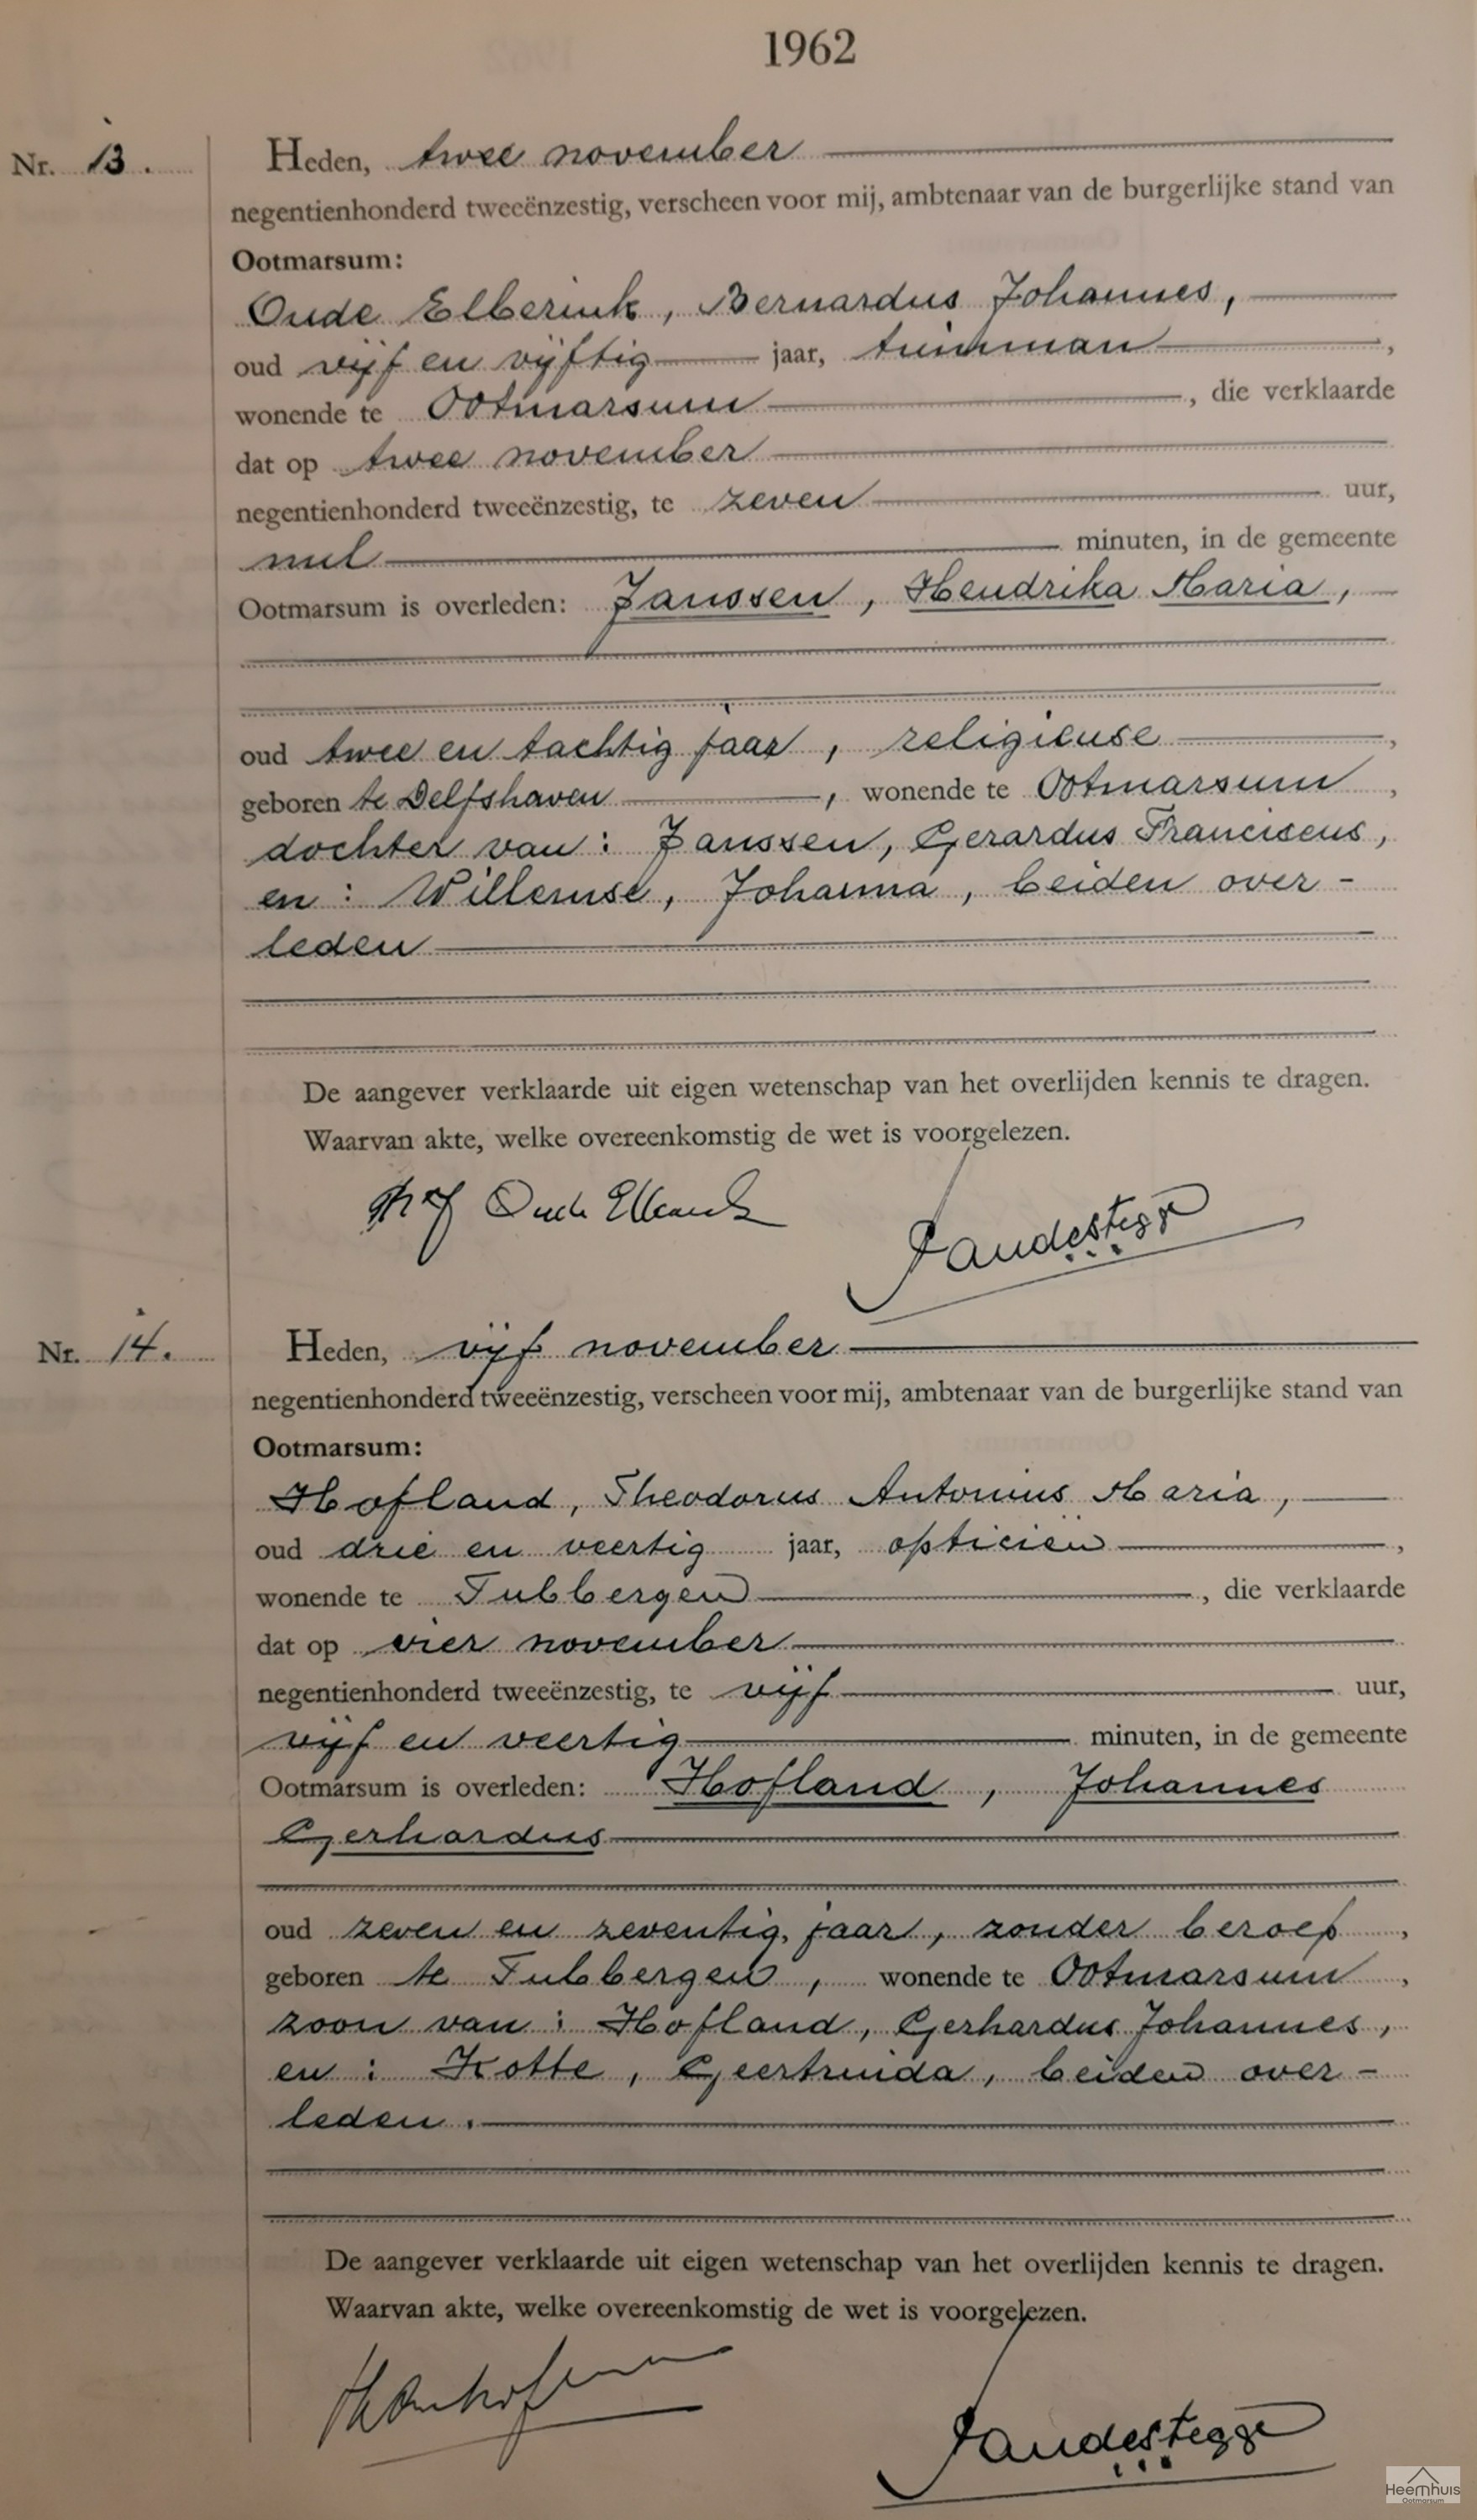 1962
Nr. 13. Heden, twee november
negentienhonderd tweeënzestig, verscheen voor mij, ambtenaar van de burgerlijke stand van
Ootmarsum:
Oude Elberink, Bernardus Johannes,
oud vijf en vijftig jaar, tuinman,
wonende te Ootmarsum, die verklaarde
dat op twee november
negentienhonderd tweeënzestig, te zeven uur,
nul minuten, in de gemeente
Ootmarsum is overleden: Janssen, Hendrika Maria,
oud twee en tachtig jaar, religieuse,
geboren te Delfshaven, wonende te Ootmarsum,
dochter van: Janssen, Gerardus Franciscus,
en: Willemse, Johanna, beiden over-
leden
De aangever verklaarde uit eigen wetenschap van het overlijden kennis te dragen.
Waarvan akte, welke overeenkomstig de wet is voorgelezen.
Oude Elberink
Nr. 14. Heden, vijf november
negentienhonderd tweeënzestig, verscheen voor mij, ambtenaar van de burgerlijke stand van
Ootmarsum:
Hofland, Theodorus Antonius Maria,
oud drie en veertig jaar, opticien,
wonende te Tubbergen, die verklaarde
dat op vier november
negentienhonderd tweeënzestig, te vijf uur,
vijf en veertig minuten, in de gemeente
Ootmarsum is overleden: Hofland, Johannes
Gerhardus
oud zeven en zeventig jaar, zonder beroep,
geboren te Tubbergen, wonende te Ootmarsum,
zoon van: Hofland, Gerhardus Johannes,
en: Kotte, Geertruida, beiden over-
leden.
De aangever verklaarde uit eigen wetenschap van het overlijden kennis te dragen.
Waarvan akte, welke overeenkomstig de wet is voorgelezen.
Heemhuis
Ootmarsum